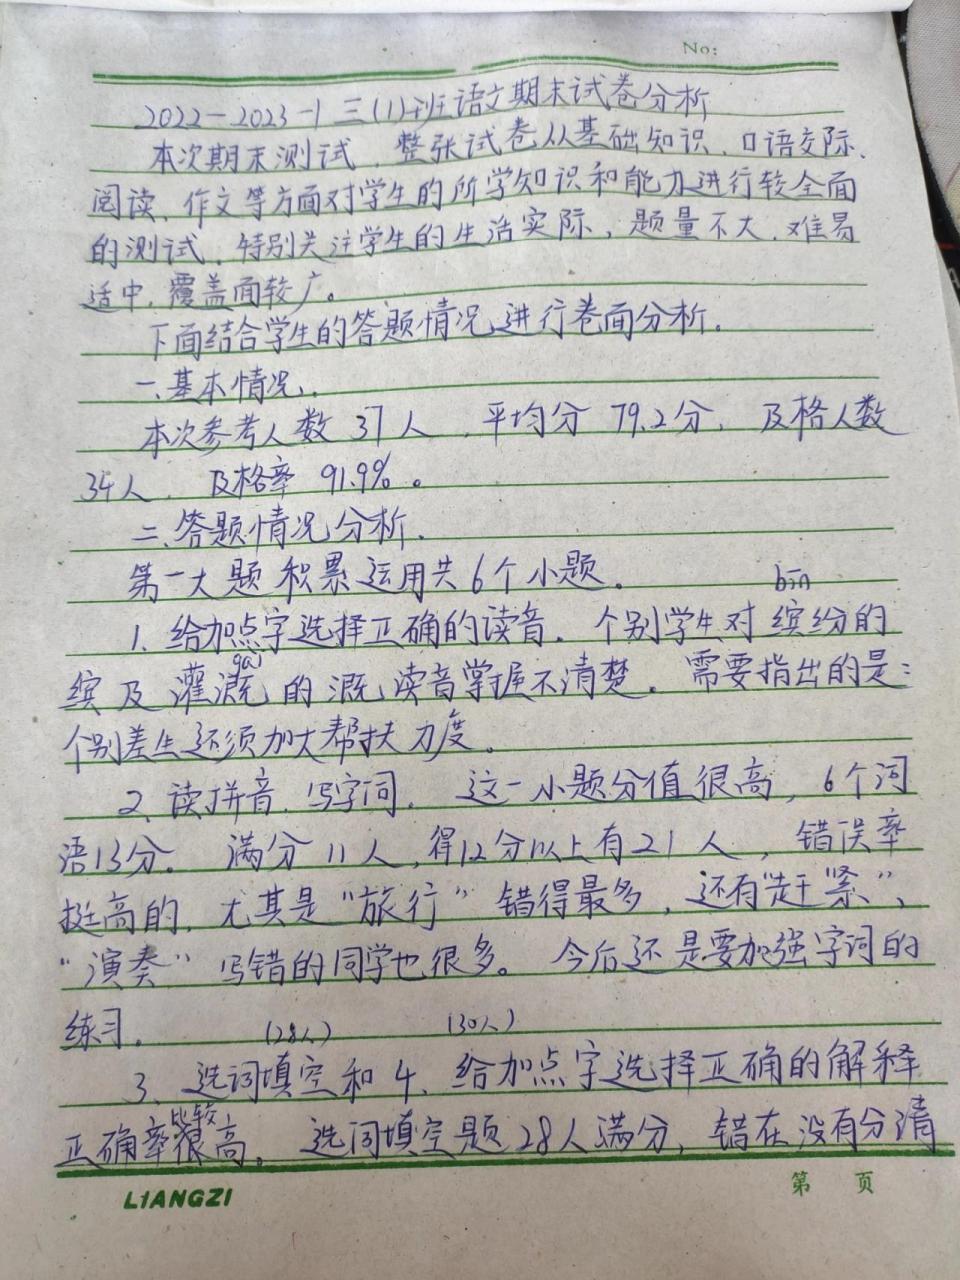 No:
2022-2023-1 三(1)班语文期末试卷分析
本次期末测试，整张试卷从基础知识、口语交际、
阅读、作文等方面对学生的所学知识和能力进行较全面
的测试，特别关注学生的生活实际，题量不大，难易
适中，覆盖面较广。
下面结合学生的答题情况进行卷面分析。
一、基本情况。
本次参考人数 37人，平均分 79.2分，及格人数
34人，及格率 91.9%。
二、答题情况分析。
第一大题 积累运用共6个小题。
bīn
1、给加点字选择正确的读音。个别学生对 缤纷的
gài
缤 及 灌溉 的 溉 读音掌握不清楚。需要指出的是：
个别差生还须加大帮扶力度。
2、读拼音，写字词。这一小题分值很高，6个词
语13分。满分11人，得12分以上有21人，错误率
挺高的，尤其是“旅行”错得最多，还有“赶紧”、
“演奏”写错的同学也很多。今后还是要加强字词的
练习。
(28人) (30人)
3、选词填空和4、给加点字选择正确的解释
比较
正确率很高。选词填空题28人满分，错在没有分清
LIANGZI
第 页